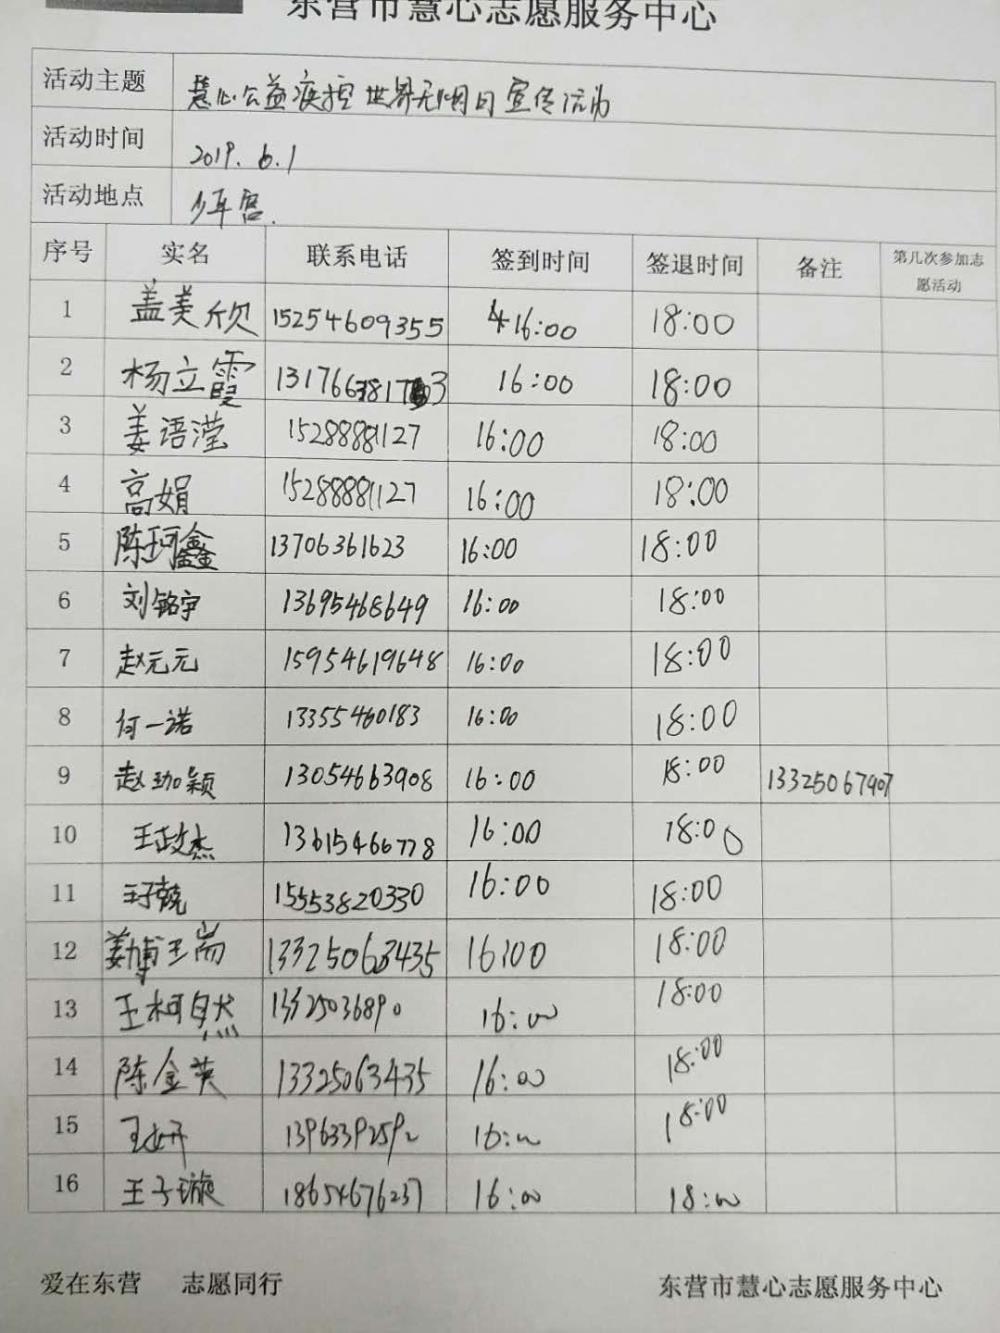 东营市慧心志愿服务中心
活动主题 慧心公益疾控世界无烟日宣传活动
活动时间 2019.6.1
活动地点 少年宫.
序号 实名 联系电话 签到时间 签退时间 备注 第几次参加志愿活动
1 盖美欣 15254609355 16:00 18:00
2 杨立霞 16:00 18:00
3 姜语滢 15288881127 16:00 18:00
4 高娟 15288881127 16:00 18:00
5 陈珂鑫 13706361623 16:00 18:00
6 刘铭宇 13695468649 16:00 18:00
7 赵元元 15954619648 16:00 18:00
8 何一诺 13355460183 16:00 18:00
9 赵珈颖 13054663908 16:00 18:00 13325067907
10 王政杰 13615466778 16:00 18:00
11 15553820330 16:00 18:00
12 13325063435 16:00 18:00
13 王柯自然 16:00 18:00
14 陈金英 13325063435 16:00 18:00
15 王妍 16:00 18:00
16 王子璇 18654676237 16:00 18:00
爱在东营 志愿同行 东营市慧心志愿服务中心